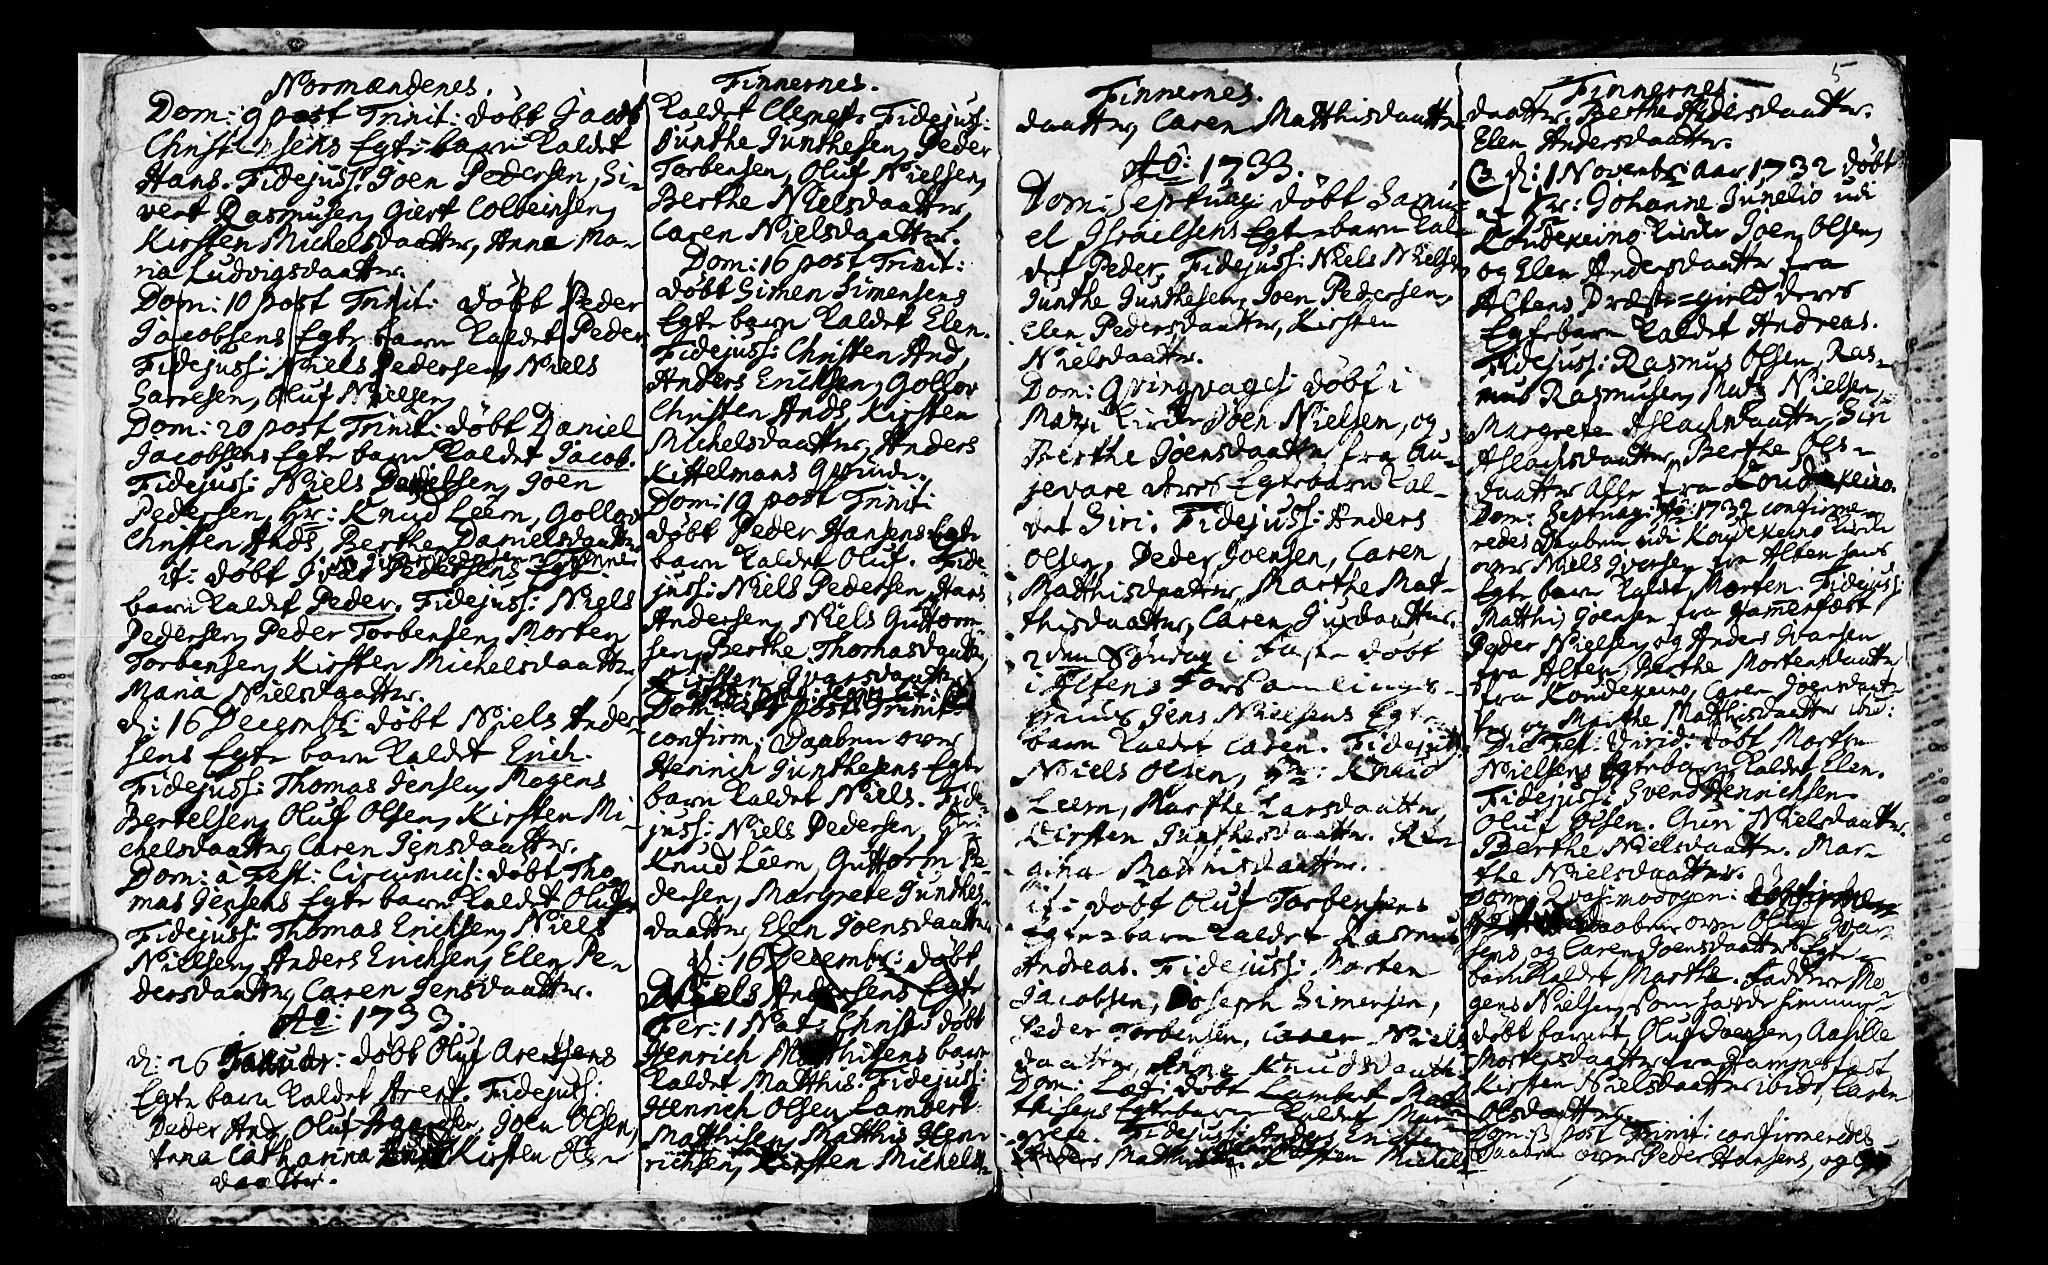 Normændenes.
Dom: 9 post Trinit: døbt Jacob
Christensens Egte barn kaldet
Hans. Fidejuss: Joen Pedersen, Si-
vert Rasmusen, Giert Colbeinsen,
Kirsten Michelsdaatter, Anna Ma-
ria Ludvigsdaatter.
Dom: 10 post Trinit: døbt Peder
Jacobsens Egte barn kaldet Peder
Fidejuss: Niels Pedersen, Niels
Sarresen, Oluf Nielsen,
Dom: 20 post Trinit: døbt Daniel
Jacobsens Egte barn kaldet Jacob.
Fidejuss: Niels Joen
Pedersen, Hr: Knud Leem, Gollov
Christen Ands, Berthe Danielsdaatter
it: døbt Ivar Pedersens Egte
barn kaldet Peder. Fidejuss: Niels
Pedersen, Peder Torbensen, Morten
Torbensen, Kirsten Michelsdaatter,
Maria Nielsdaatter.
d: 16 Decembr: døbt Niels Ander-
sens Egte barn kaldet Erich.
Fidejuss: Thomas Jensen, Mogens
Bertelsen, Oluf Olsen, Kirsten Mi-
chelsdaatter, Caren Jensdaatter.
Dom: a Fest: Circumcis: døbt Tho-
mas Jensens Egte barn kaldet Oluf
Fidejuss: Thomas Erichsen, Niels
Nielsen, Anders Erichsen, Elen Pe-
dersdaatter, Caren Jensdaatter.
Aô: 1733.
d: 26 Januar: døbt Oluf Arentsens
Egte barn kaldet Arent. Fidejuss:
Peder And, Oluf Joen Olsen,
Anna Catharina Kirsten Ols-
daatter.
Finnernes.
kaldet Clemet. Fidejuss:
Junthe Junthesen, Peder
Torbensen, Oluf Nielsen,
Berthe Nielsdaatter,
Caren Nielsdaatter.
Dom: 16 post Trinit:
døbt Simen Simensens
Egte barn kaldet Elen.
Fidejuss: Christen And,
Anders Erichsen, Gollov
Christen Ands, Kirsten
Michelsdaatter, Anders
Kittelmans Qvinde.
Dom: 19 post Trinit:
døbt Peder Hansens Egte
barn kaldet Oluf. Fide-
juss: Niels Pedersen, Hans
Andersen, Niels Guttorm
sen, Berthe Thomasdaatter,
Kirsten Ivarsdaatter
Dom: post Trinit:
confirm: Daaben over
Henrich Junthesens Egte
barn kaldet Niels. Fide-
juss: Niels Pedersen, Hr:
Knud Leem, Guttorm Pe-
dersen, Margrete Junthes-
daatter, Elen Joensdaatter
d: 16 Decembr: døbt
Niels Andersens Egte
Fer: 1 Nat: Christi døbt
Henrich Matthisens barn
kaldet Matthis. Fidejuss:
Henrich Olsen, Lambert
Matthisen, Matthis Hen-
richsen, Kirsten Michels-
Finnernes.
daatter, Caren Matthisdaatter
Aô: 1733.
Dom: Septuag: døbt Samu-
el Israelsens Egte barn kal-
det Peder, Fidejuss: Niels Nielsen
Junthe Junthesen, Joen Pedersen,
Elen Pedersdaatter, Kirsten
Nielsdaatter.
Dom: Qvinqvages: døbt i
Mazi kirke Joen Nielsen, og
Berthe Joensdaatter fra Au-
jevare deres Egte barn kal-
det Siri. Fidejuss: Anders
Olsen, Peder Joensen, Caren
Matthisdaatter, Marthe Mat-
thisdaatter, Caren
2den Søndag i Faste døbt
i Altens Forsamlings-
huus Jens Nielsens Egte
barn kaldet Caren. Fidejuss:
Niels Olsen, Hr: Knud
Leem, Marthe Larsdaatter,
Kirsten Junthesdaatter. Re-
gina Matthisdaatter.
it: døbt Oluf Torbensens
Egte barn kaldet Rasmus
Andreas. Fidejuss: Morten
Jacobsen, Joseph Simensen,
Peder Torbensen, Caren Niels
daatter, Anna Knudsdaatter
Dom: Læt: døbt Lambert Mat-
thisens Egte barn kaldet Mar-
grete. Fidejuss: Anders Erichsen
Anders Matthisen Kirsten Michels
5
Finnernes.
daatter, Berthe Pedersdaatter.
Elen Andersdaatter.
d: 1 Novembr: Aar 1732 døbt
af Hr: Johanne Junelio udi
Koudekeino kirke Joen Olsen,
og Elen Andersdaatter fra
Altens Præste-gield deres
Egte barn kaldet Andreas.
Fidejuss: Rasmus Olsen, Ras-
mus Rasmusen, Mads Nielsen,
Margrete Aslachsdaatter, Siri
Aslachsdaatter, Berthe Ols-
daatter Alle fra Koudekeino.
Dom: Septuag: Aô: 1732 confirme-
redes Daaben udi Koudekeino kirke
over Niels Iversen fra Alten hans
Egte barn kaldet Morten. Fidejuss:
Matthis Joensen fra Hammerfæst
Peder Nielsen, og Anders Ivarsen
fra Alten, Berthe Mortensdaatter
fra Koudekeino, Caren Joensdaat-
ter og Marthe Matthisdaatter ibid:
Die Fest: Virid: døbt Morten
Nielsens Egte barn kaldet Elen.
Fidejuss: Svend Henrichsen.
Oluf Olsen. Guri Nielsdaatter.
Berthe Nielsdaatter. Mar-
the Nielsdaatter.
Dom: Qvasimodogen:
Daaben over Oluf Ivar-
sens og Caren Joensdaatters Egte
barn kaldet Marthe. Faddere Mo-
gens Nielsen, som hafde hiemme
døbt barnet, Oluf Joensen, Aasille
Mortensdaatter fra Hammerfæst
Kirsten Nielsdaatter ibid, Caren
Olsdaatter.
Dom: 3 post Trinit: confirmeredes
Daaben over Peder Hansens, og